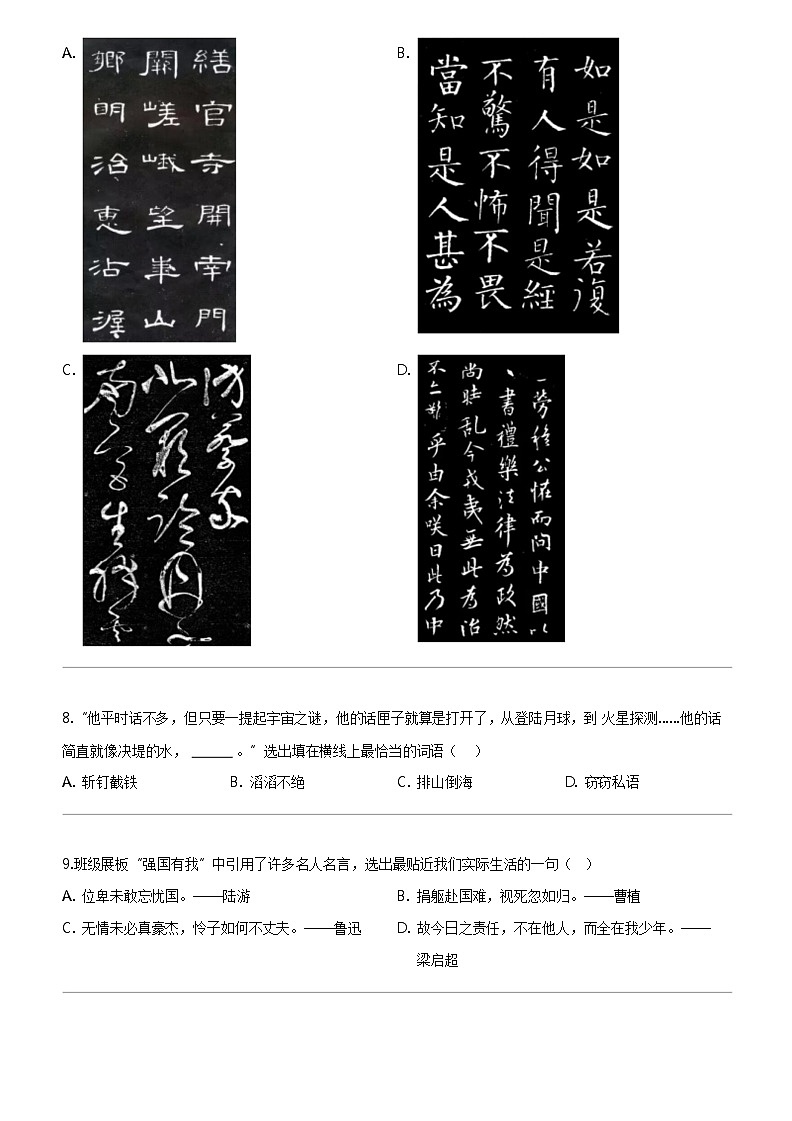 A.
繕官寺開南門
闕嵯峨望華山
鄉明治惠沾渥
B.
如是如是若復
有人得聞是經
不驚不怖不畏
當知是人甚為
C.
D.
穆公怪而問中國以
書禮樂法律為政然
尚時乱今戎夷無此為治
不亦難乎由余咲曰此乃中
8.“他平时话不多，但只要一提起宇宙之谜，他的话匣子就算是打开了，从登陆月球，到 火星探测……他的话
简直就像决堤的水， ______ 。”选出填在横线上最恰当的词语（ ）
A. 斩钉截铁 B. 滔滔不绝 C. 排山倒海 D. 窃窃私语
9.班级展板“强国有我”中引用了许多名人名言，选出最贴近我们实际生活的一句（ ）
A. 位卑未敢忘忧国。——陆游 B. 捐躯赴国难，视死忽如归。——曹植
C. 无情未必真豪杰，怜子如何不丈夫。——鲁迅 D. 故今日之责任，不在他人，而全在我少年。——
梁启超